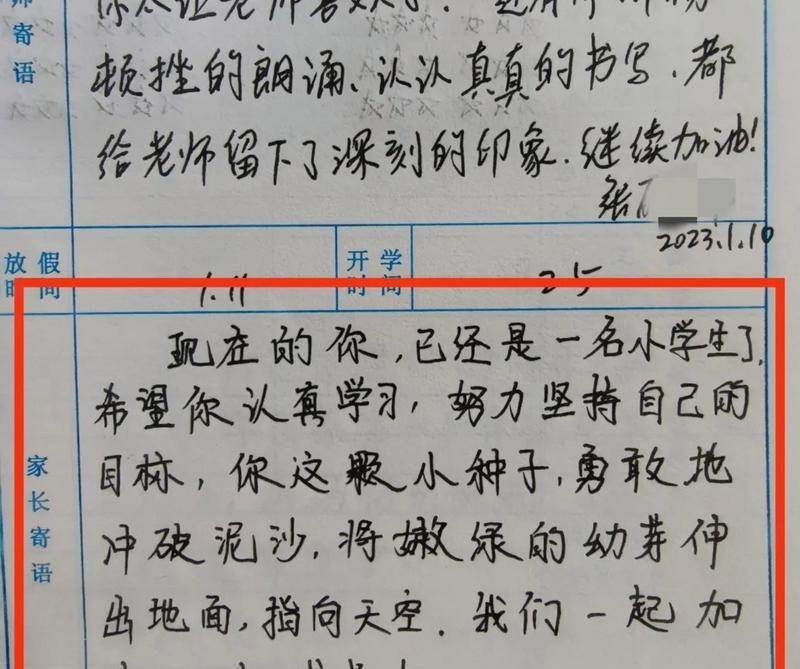 师寄语
顿挫的朗诵、认认真真的书写,都
给老师留下了深刻的印象.继续加油!
张
2023.1.10
放假时间
1.11
开学时间
2.5
家长寄语
现在的你,已经是一名小学生了,
希望你认真学习,努力坚持自己的
目标,你这颗小种子,勇敢地
冲破泥沙,将嫩绿的幼芽伸
出地面,指向天空.我们一起加